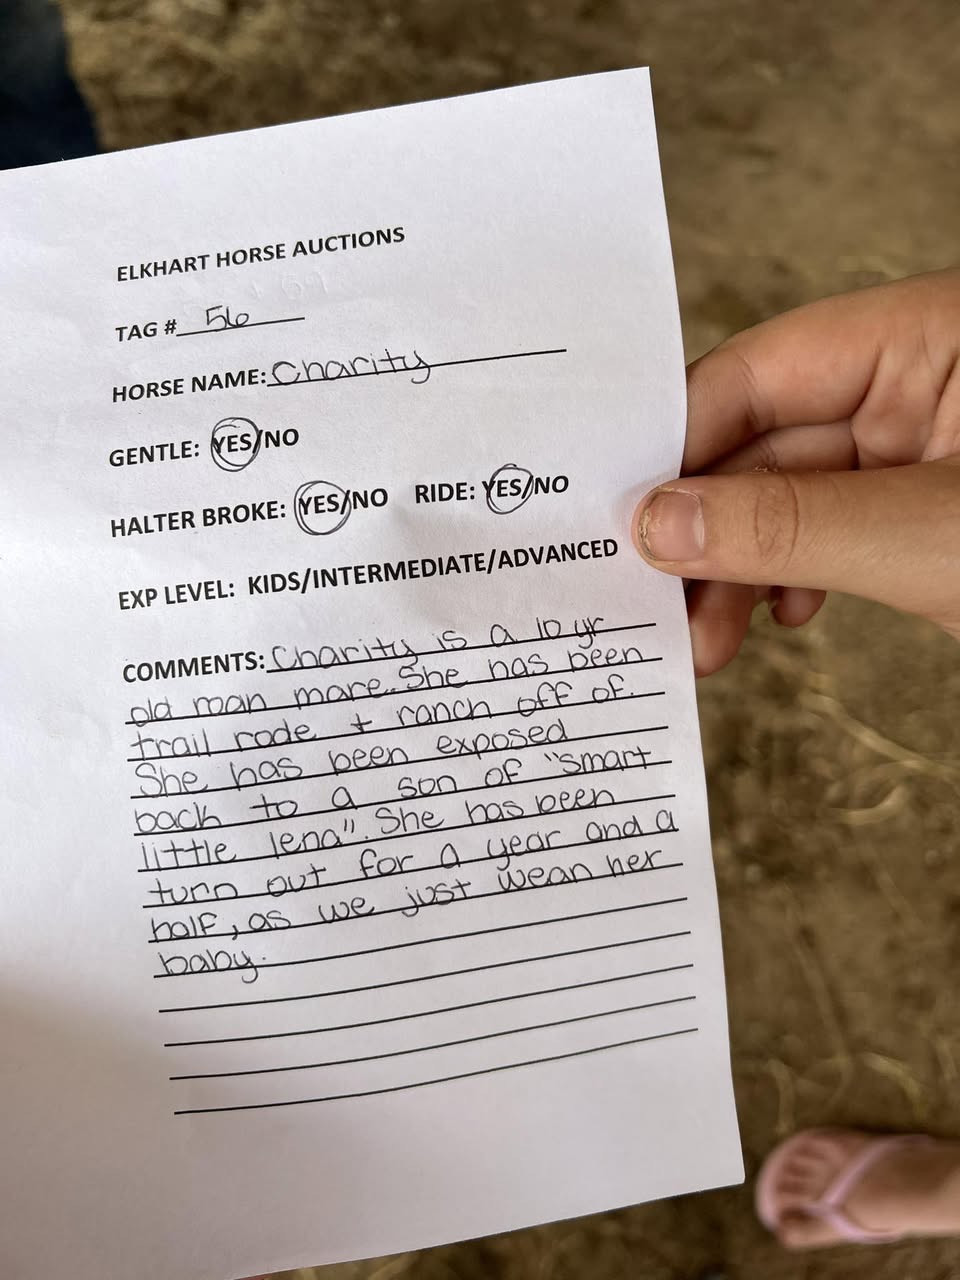 ELKHART HORSE AUCTIONS
TAG # 56
HORSE NAME: Charity
GENTLE: YES/NO
HALTER BROKE: YES/NO RIDE: YES/NO
EXP LEVEL: KIDS/INTERMEDIATE/ADVANCED
COMMENTS: Charity is a 10 yr
old roan mare. She has been
trail rode + ranch off of.
She has been exposed
back to a son of "Smart
little lena". She has been
turn out for a year and a
half, as we just wean her
baby.